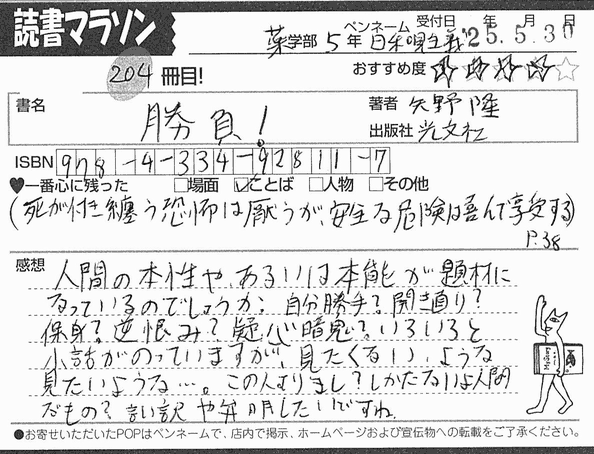 読書マラソン
ペンネーム 受付日 年 月 日
薬学部 5年 日和見主義 '25.5.30
204冊目!
おすすめ度 ☆☆☆☆☆
書名 勝負!
著者 矢野隆
出版社 光文社
ISBN 978-4-334-92811-7
♥一番心に残った □場面 ☑ことば □人物 □その他
(死が付き纏う恐怖は厭うが、安全な危険は喜んで享受する)
P.38
感想
人間の本性や、あるいは本能が題材に
なっているのでしょうか。自分勝手?開き直り?
保身?逆恨み?疑心暗鬼?いろいろと
小話がのっていますが、見たくない、ような
見たいような…。この人よりまし?しかたないよ人間
だもの?言い訳や弁明したいですね。
●お寄せいただいたPOPはペンネームで、店内で掲示、ホームページおよび宣伝物への転載をご了承ください。